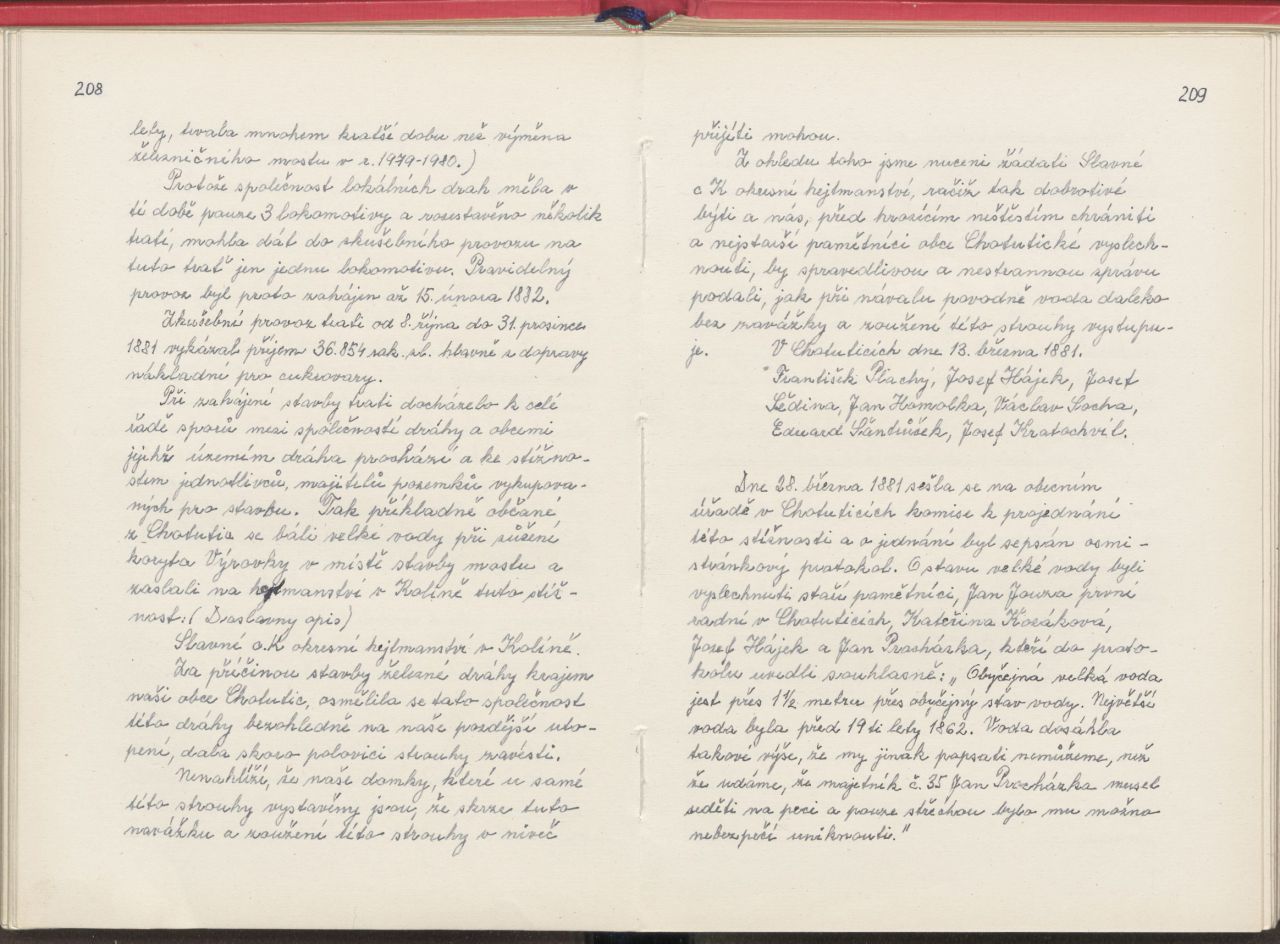 208
lety, trvala mnohem kratší dobu než výměna
železničního mostu v r. 1979-1980.)
Protože společnost lokálních drah měla v
té době pouze 3 lokomotivy a rozestavěno několik
tratí, mohla dát do zkušebního provozu na
tuto trať jen jednu lokomotivu. Pravidelný
provoz byl proto zahájen až 15. února 1882.
Zkušební provoz trati od 8. října do 31. prosince
1881 vykázal příjem 36.854 rak. zl. hlavně z dopravy
nákladní pro cukrovary.
Při zahájení stavby trati docházelo k celé
řadě sporů mezi společností dráhy a obcemi
jejichž územím dráha prochází a ke stížno-
stem jednotlivců, majitelů pozemků vykupova-
ných pro stavbu. Tak příkladně občané
z Chotutic se báli velké vody při zúžení
koryta Výrovky v místě stavby mostu a
zaslali na hejtmanství v Kolíně tuto stíž-
nost: (Doslovný opis)
Slavné c.K okresní hejtmanství v Kolíně.
Za příčinou stavby železné dráhy krajem
naší obce Chotutic, osmělila se tato společnost
této dráhy bezohledně na naše pozdější uto-
pení, dala skoro polovici strouhy zavésti.
Nenahlíží, že naše domky, které u samé
této strouhy vystavěny jsou, že skrze tuto
navážku a zoužení této strouhy v niveč
209
přijíti mohou.
Z ohledu toho jsme nuceni žádati Slavné
c K okresní hejtmanství, račiž tak dobrotivé
býti a nás, před hrozícím neštěstím chrániti
a nejstarší pamětníci obce Chotutické vyslech-
nouti, by spravedlivou a nestrannou zprávu
podali, jak při návalu povodně voda daleko
bez navážky a zoužení této strouhy vystupu-
je. V Chotuticích dne 13. března 1881.
František Plachý, Josef Hájek, Josef
Šedina, Jan Homolka, Václav Socha,
Eduard Šántrůček, Josef Kratochvíl.
Dne 28. března 1881 sešla se na obecním
úřadě v Chotuticích komise k projednání
této stížnosti a o jednání byl sepsán osmi-
stránkový protokol. O stavu velké vody byli
vyslechnuti staří pamětníci, Jan Jouza první
radní v Chotuticích, Kateřina Kozáková,
Josef Hájek a Jan Procházka, kteří do proto-
kolu uvedli souhlasně: „Obyčejná velká voda
jest přes 1 1/2 metru přes obyčejný stav vody. Největší
voda byla před 19ti lety 1862. Voda dosáhla
takové výše, že my jinak popsati nemůžeme, než
že udáme, že majetník č. 35 Jan Procházka musel
seděti na peci a pouze střechou bylo mu možno
nebezpečí uniknouti."